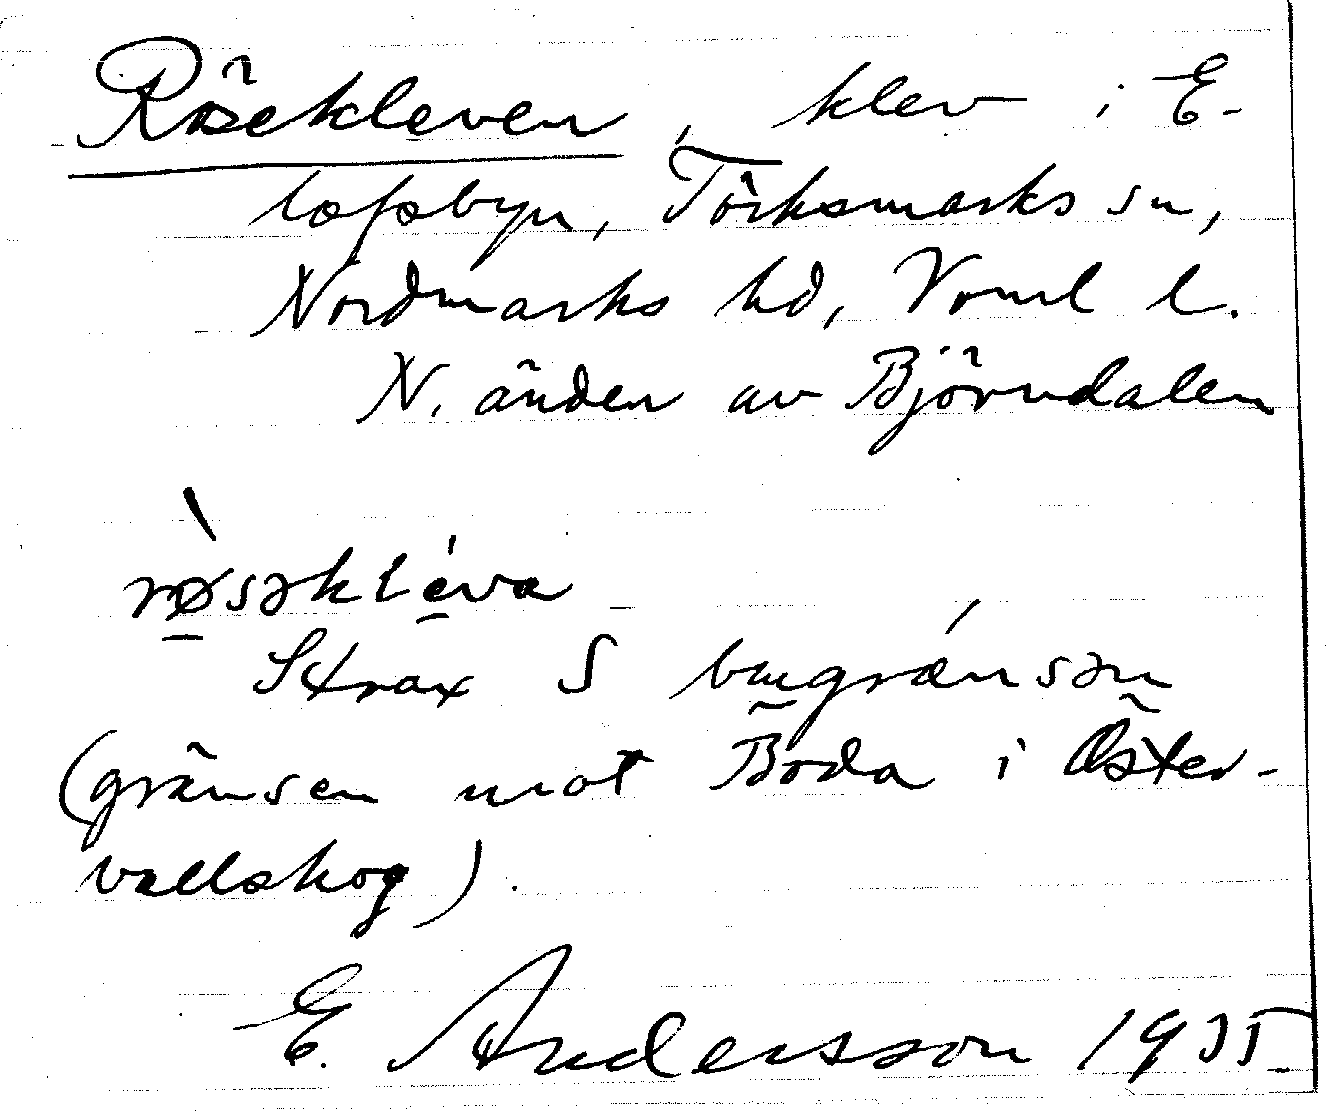 Rösekleven, klev i E-
lofsbyn, Törksmarks sn,
Nordmarks hd, Vrml l.
N. änden av Björndalen
rø̀səkléva
Strax S bugrǽnsən
(gränsen mot Böda i Öster-
vallskog).
E. Andersson 1935